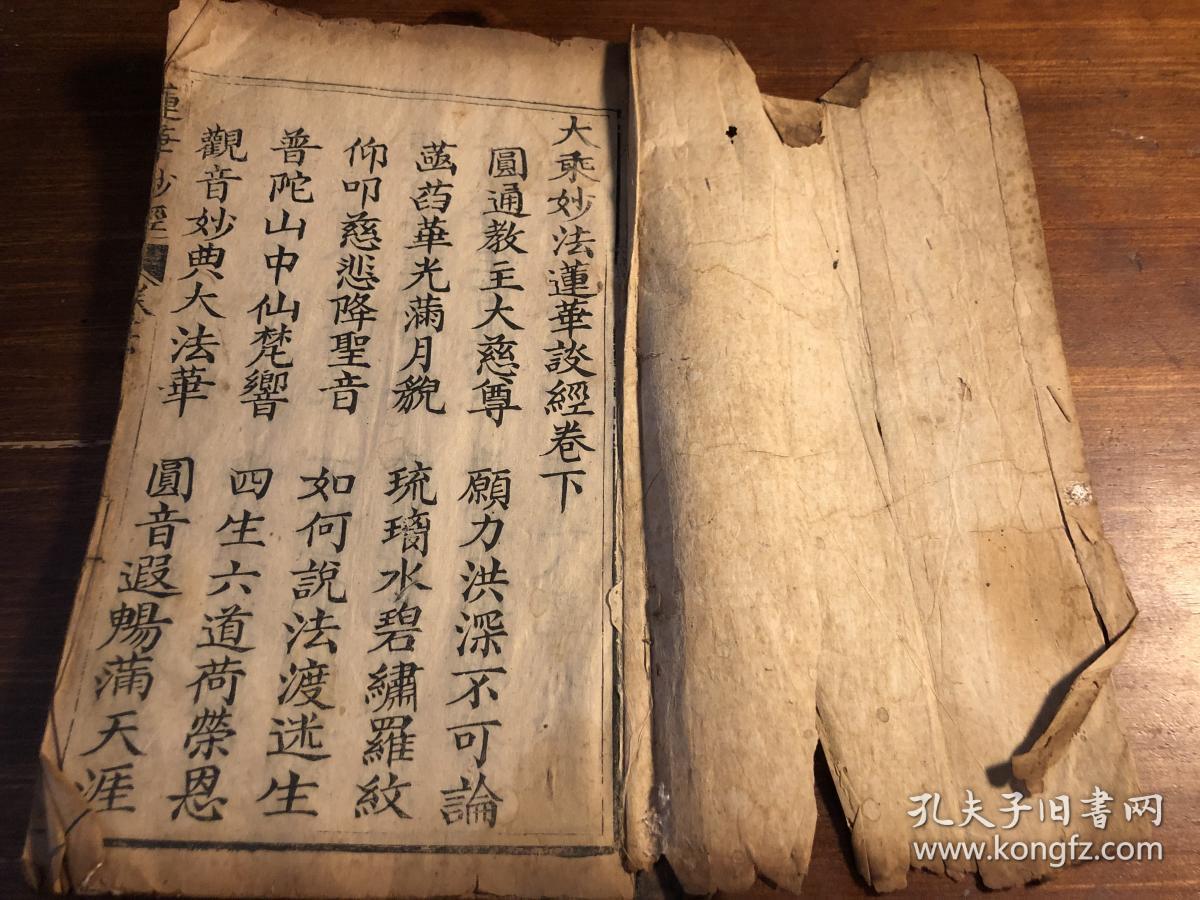 大乘妙法蓮華談經卷下
圓通教主大慈尊 願力洪深不可論
菡萏華光滿月貌 琉璃水碧繡羅紋
仰叩慈悲降聖音 如何說法渡迷生
普陀山中仙梵響 四生六道荷榮恩
觀音妙典大法華 圓音遐暢滿天涯
蓮華妙經
孔夫子旧书网
www.kongfz.com